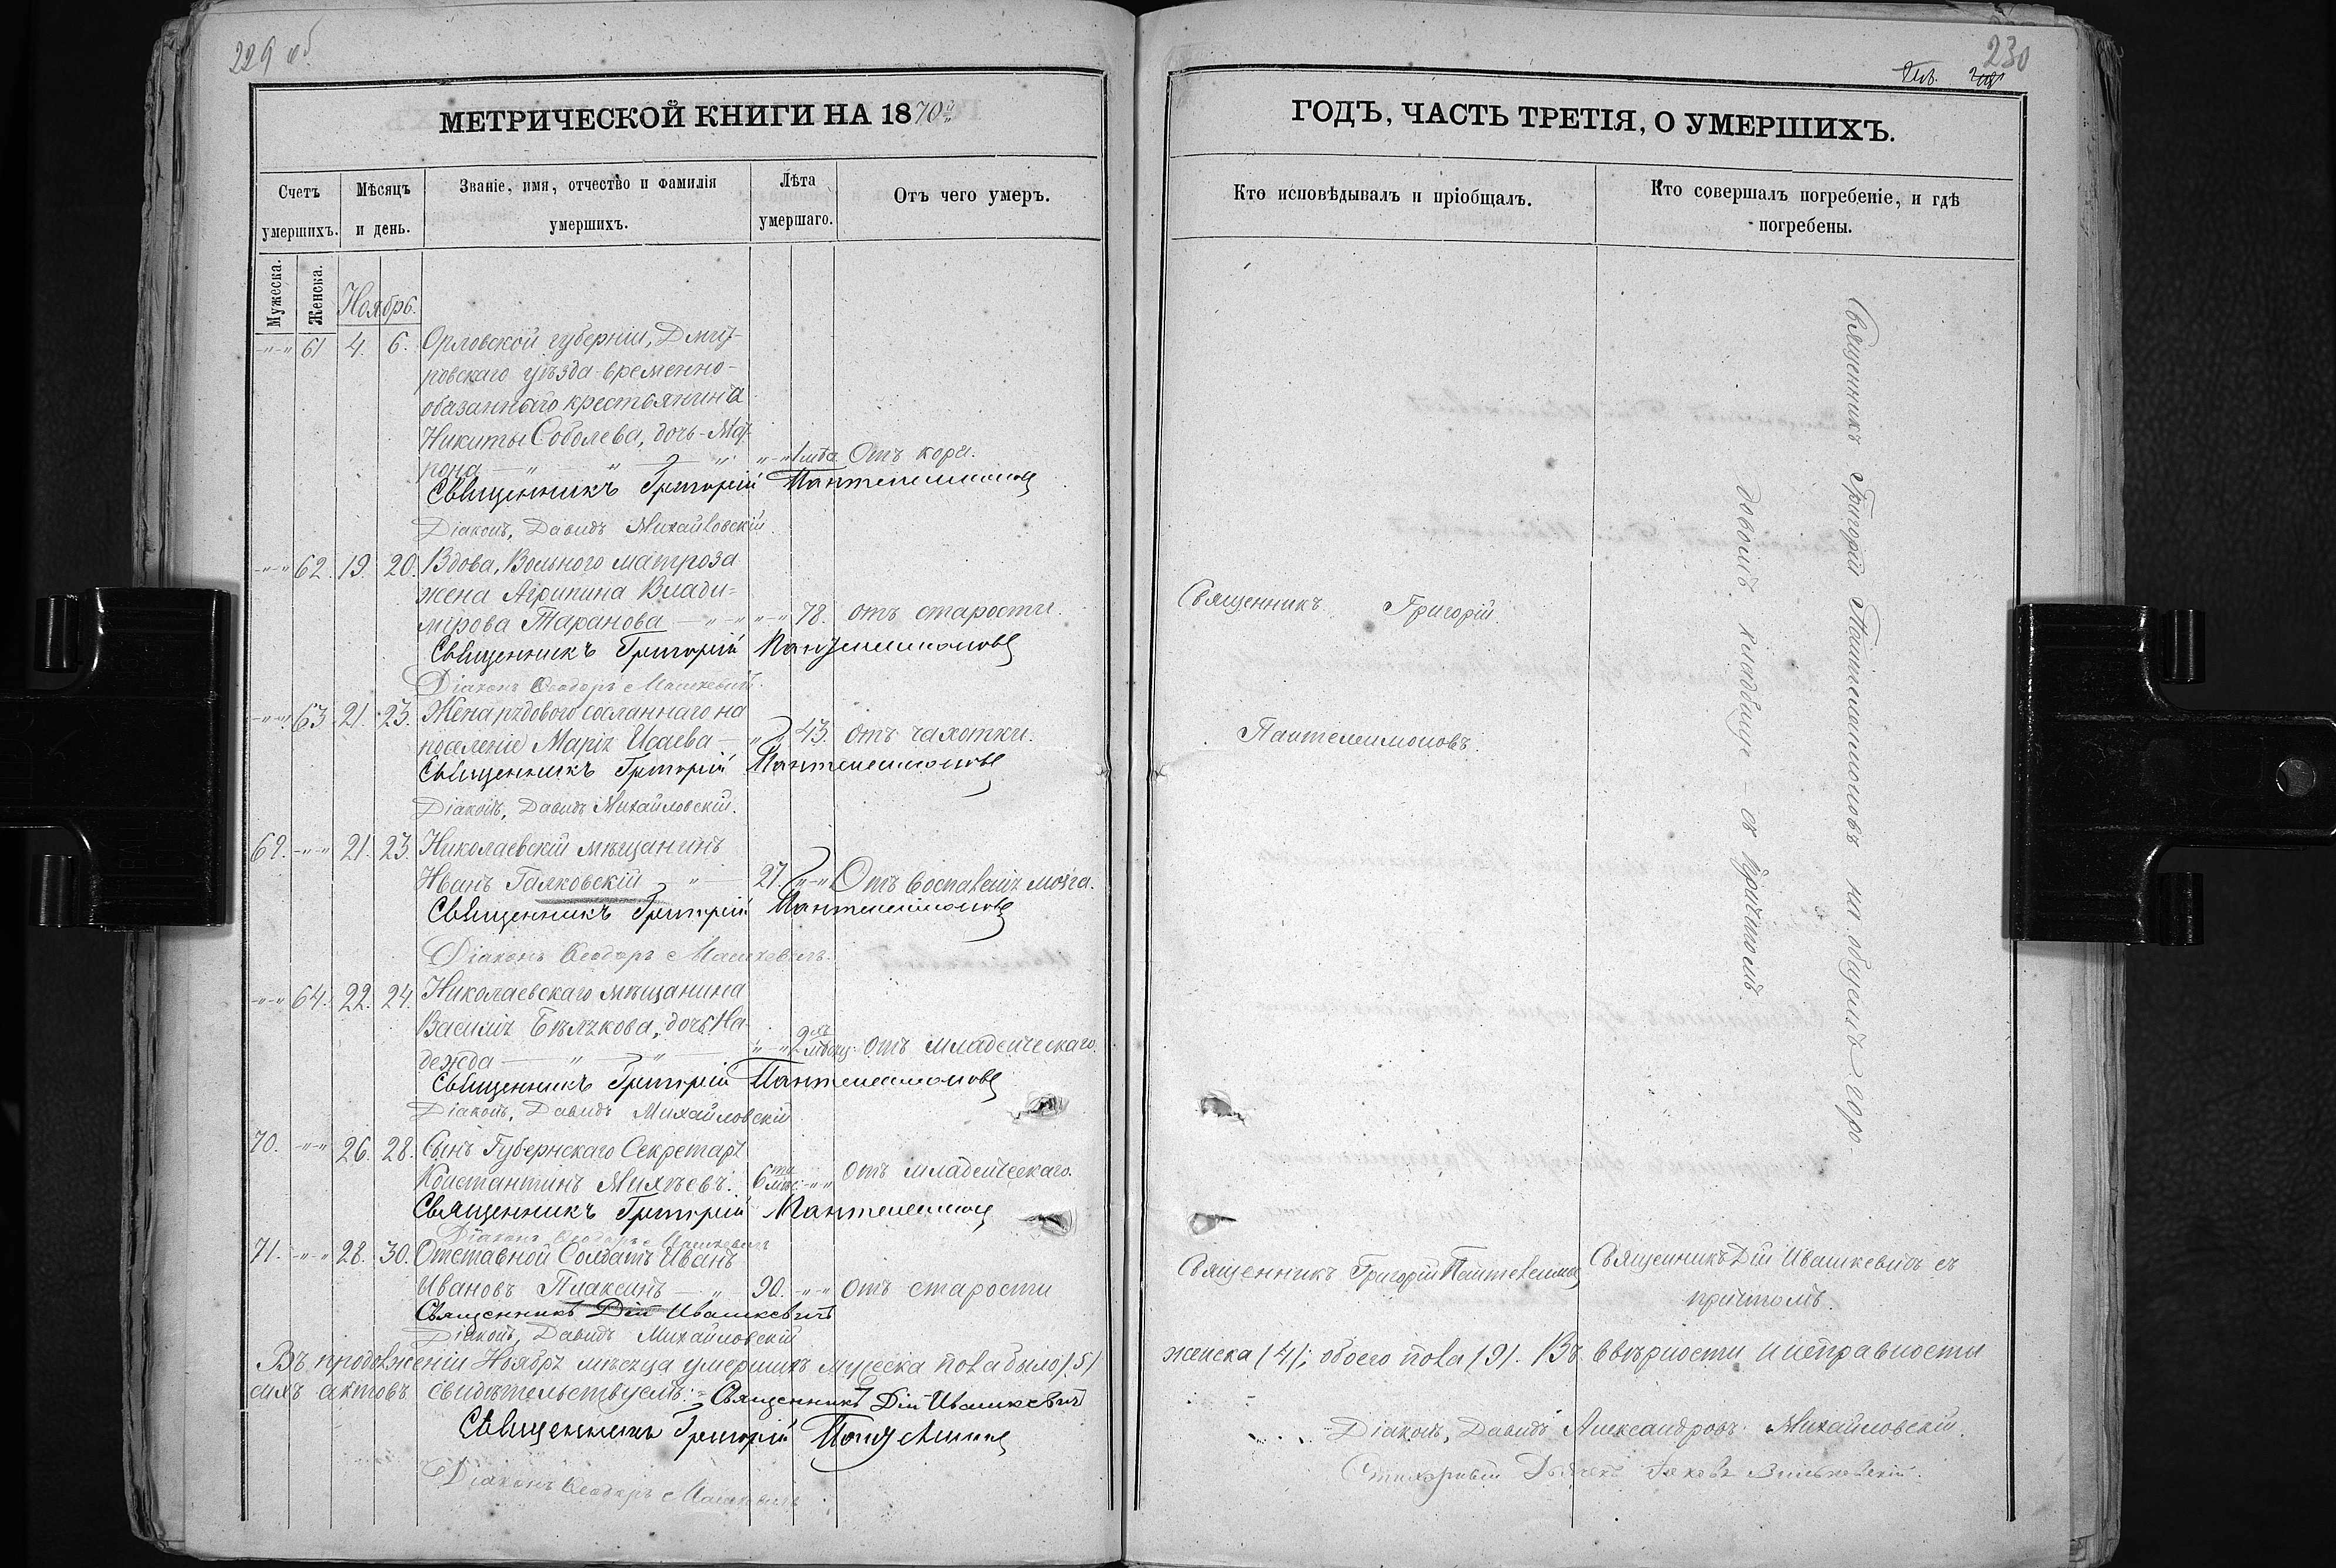 229 об
МЕТРИЧЕСКОЙ КНИГИ НА 1870й
Счетъ умершихъ.
Мѣсяцъ и день.
Званіе, имя, отчество и фамилія умершихъ.
Лѣта умершаго.
Отъ чего умеръ.
Мужеска.
Женска.
Ноябрь.
-"-" 61 4. 6. Орловской губерніи, Дмит-
ровскаго уѣзда временно-
обязаннаго крестьянина
Никиты Соболева, дочь - Мат-
рона — " — " — " "-" 1 года Отъ кори.
Священникъ Григорій Пантелеимоновъ
Діаконъ, Давидъ Михайловскій.
-"-" 62. 19. 20. Вдова, Вольного матроза
жена Агрипина Влади=
мірова Таранова — "-" "-" 78. отъ старости.
Священникъ Григорій Пантелеимоновъ
Діаконъ Ѳеодоръ Машкевичъ.
-"-" 63. 21. 23. Жена рядового сосланнаго на
поселеніе Марія Исаева — " 43. отъ чахотки.
Священникъ Григорій Пантелеимоновъ
Діаконъ, Давидъ Михайловскій.
69. -"-" 21. 23. Николаевскій мѣщанинъ
Иванъ Галковскій — " — 27. "-" Отъ воспаленія мозга.
Священникъ Григорій Пантелеимоновъ
Діаконъ Ѳеодоръ Машкевичъ.
-"-" 64. 22. 24. Николаевскаго мѣщанина
Василія Бѣлякова, дочь На-
дежда — " — " — "-" 2 мѣсяц. отъ младенческаго.
Священникъ Григорій Пантелеимоновъ
Діаконъ, Давидъ Михайловскій
70. -"-" 26. 28. Сынъ Губернскаго Секретаря
Константинъ Михѣевъ. 6ти мѣс. "-" отъ младенческаго.
Священникъ Григорій Пантелеимоновъ
Діаконъ Ѳеодоръ Машкевичъ
71. -"-" 28. 30. Отставной Солдатъ Иванъ
Ивановъ Плаксинъ — " 90. "-" отъ старости
Священникъ Дій Ивашкевичъ
Діаконъ, Давидъ Михайловскій
Въ продолженіи Ноября мѣсяца умершихъ мужеска пола было /5/
сихъ актовъ свидѣтельствуемъ: Священникъ Дій Ивашкевичъ
Священникъ Григорій Пантелеимоновъ
Діаконъ Ѳеодоръ Машкевичъ
230
ГОДЪ, ЧАСТЬ ТРЕТІЯ, О УМЕРШИХЪ.
Кто исповѣдывалъ и пріобщалъ.
Кто совершалъ погребеніе, и гдѣ погребены.
Священникъ Григорій
Пантелеимоновъ.
Священникъ Григорій Пантелеимоновъ на общемъ горо-
довомъ кладбище — съ причтомъ.
Священникъ Григорій Пантелеимоновъ
Священникъ Дій Ивашкевичъ съ
причтомъ.
женска /4/; обоего пола /9/. Въ вѣрности и исправности
Діаконъ, Давидъ Александровъ Михайловскій.
Стихарный Дьячекъ Яковъ